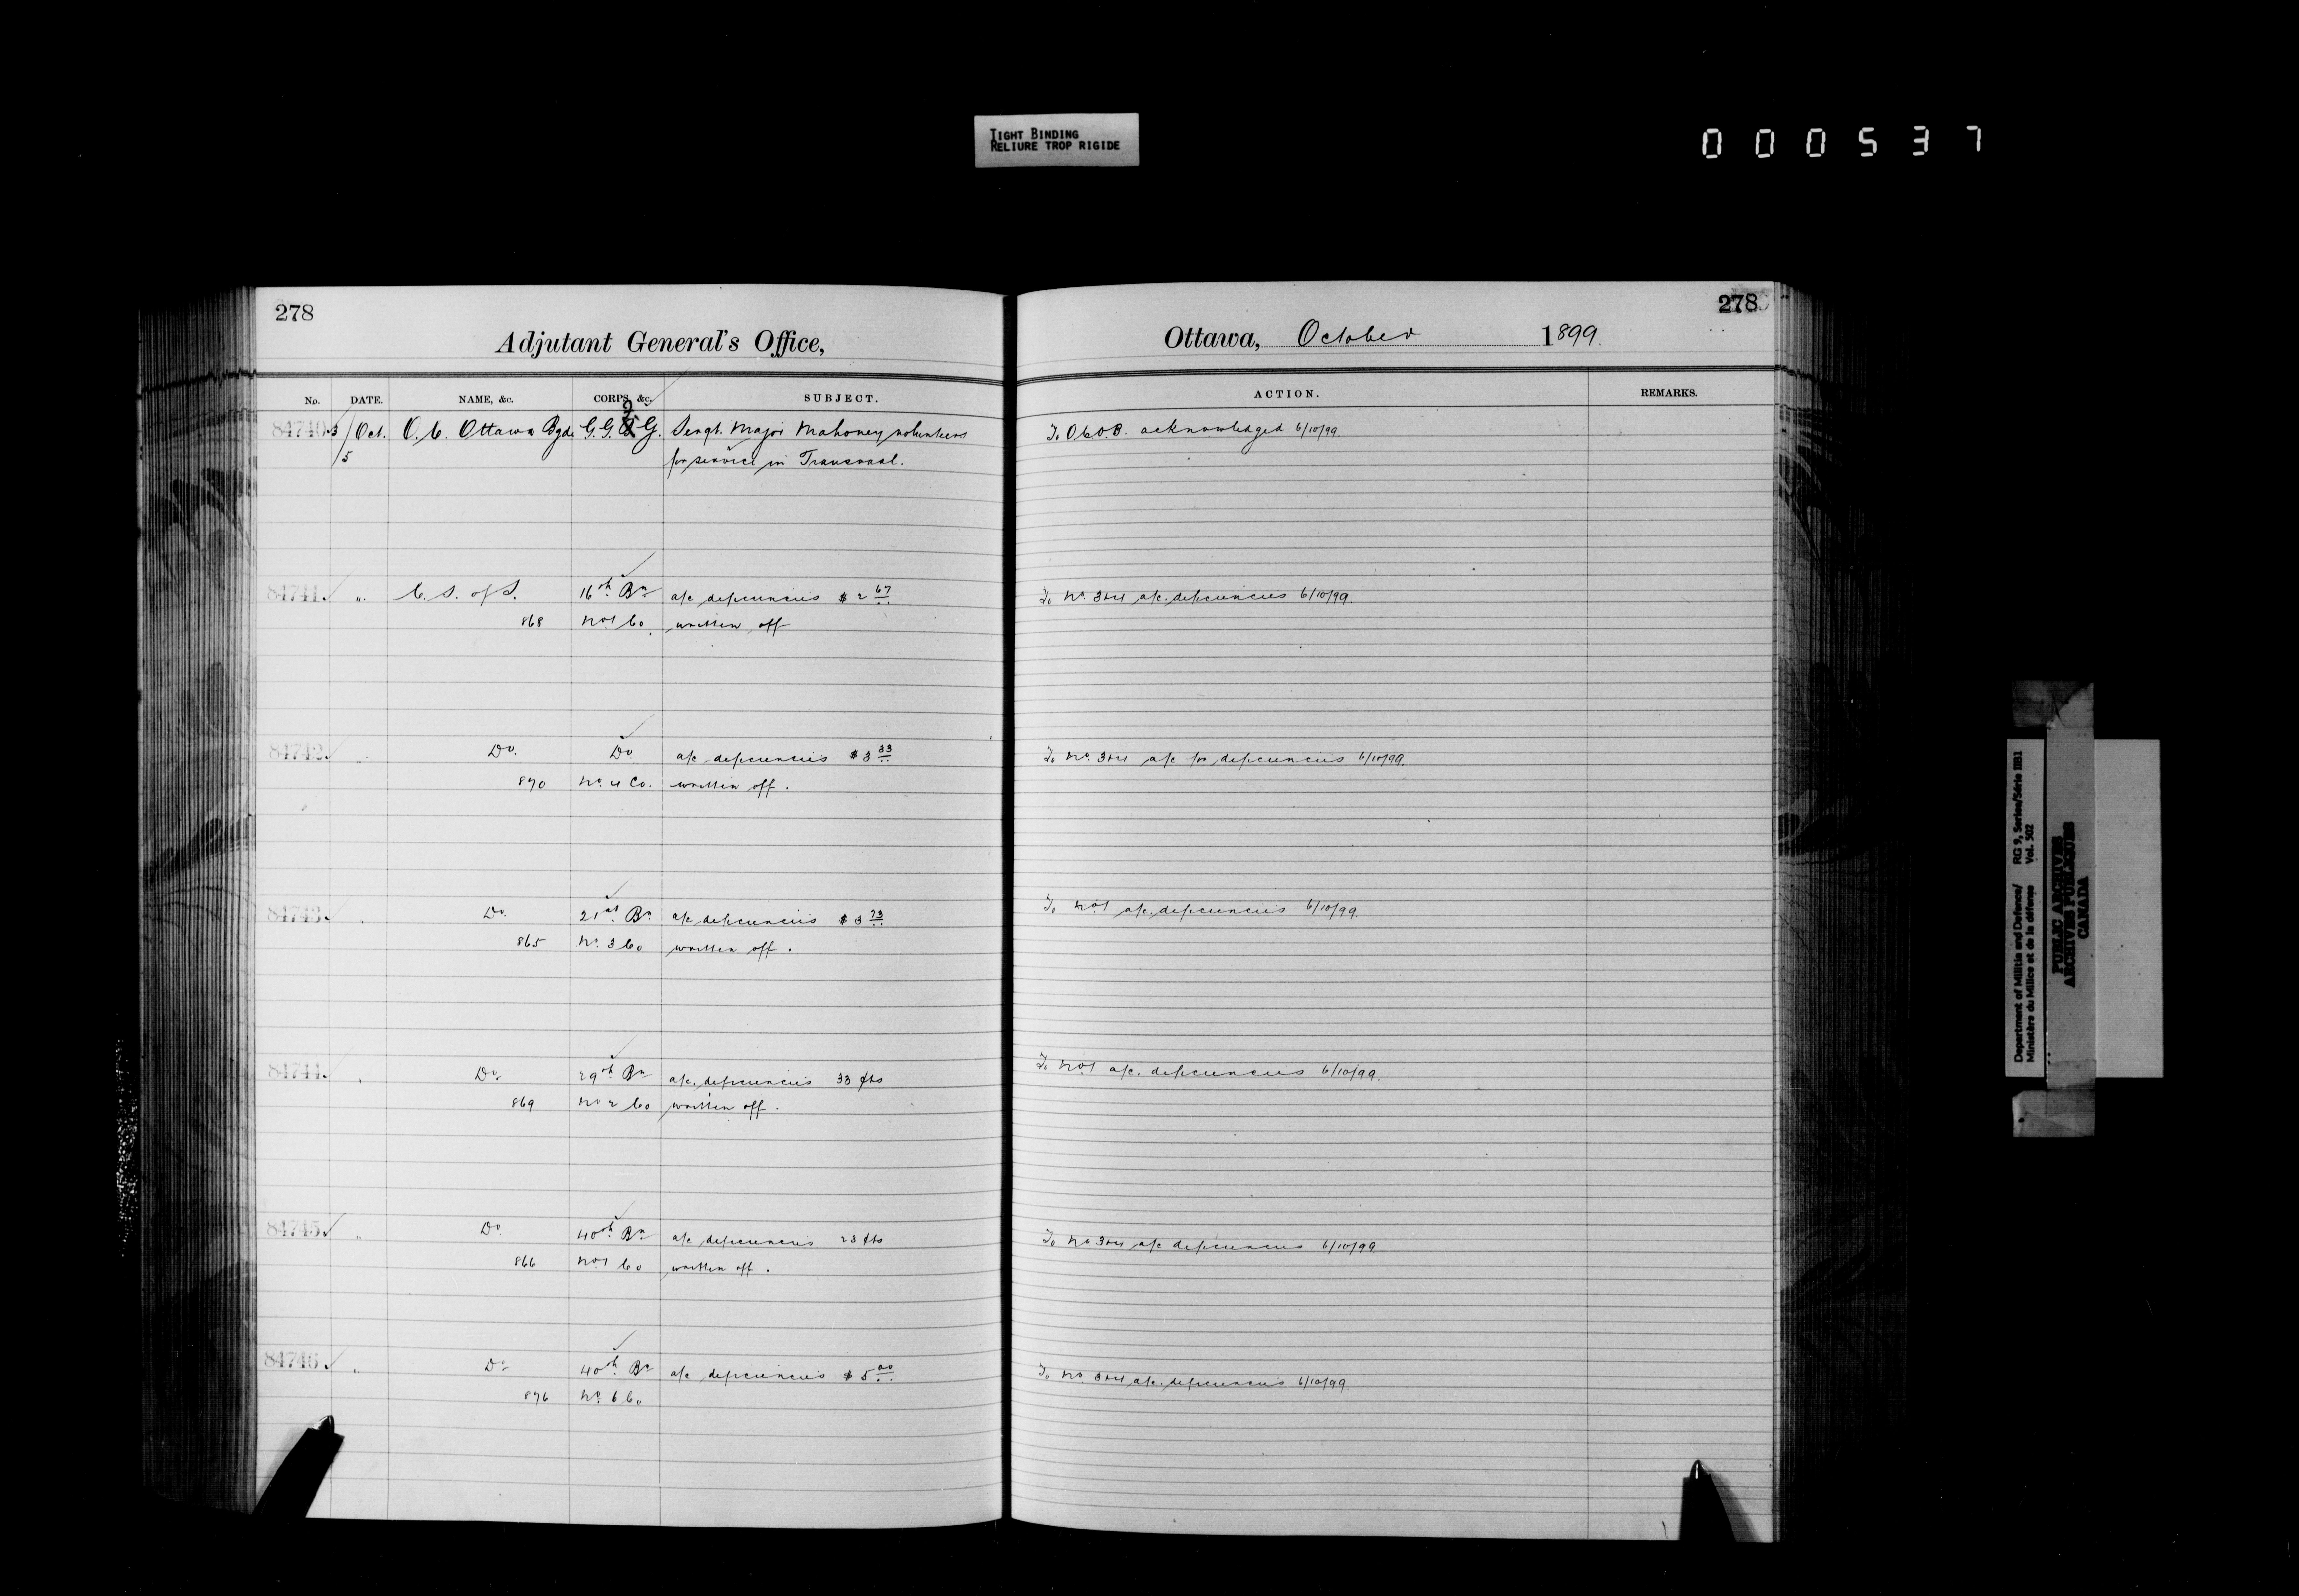 TIGHT BINDING
RELIURE TROP RIGIDE
000537
278
Adjutant General's Office,
No. DATE. NAME, &c. CORPS, &c. SUBJECT.
84740 3/5 Oct. O.C. Ottawa Bgde G.G. G. Sergt. Major Mahoney volunteers
for service in Transvaal.
84741 " C.S. of S. 16th Bn a/c deficiencies $2 67
868 No 1 Co. written off
84742 " Do. Do. a/c deficiencies $3 33
870 No. 4 Co. written off.
84743 " Do. 21st Bn a/c deficiencies $3 73
865 No. 3 Co written off.
84744 " Do. 29th Bn a/c. deficiencies 33 cts
869 No 2 Co written off.
84745 " Do 40th Bn a/c deficiencies 23 cts
866 No 1 Co written off.
84746 " Do 40th Bn a/c deficiencies $5 00
876 No. 6 Co
278
Ottawa, October 1899.
ACTION. REMARKS.
To O.C.O.B. acknowledged 6/10/99.
To No. 3+4 a/c. deficiencies 6/10/99.
To No. 3+4 a/c for deficiencies 6/10/99.
To No 1 a/c. deficiencies 6/10/99.
To No 1 a/c. deficiencies 6/10/99.
To No 3+4 a/c deficiencies 6/10/99
To No. 3+4 a/c. deficiencies 6/10/99
Department of Militia and Defence/ RG 9, Series/Série IIB1
Ministère du Milice et de la défense Vol. 502
PUBLIC ARCHIVES
ARCHIVES PUBLIQUES
CANADA